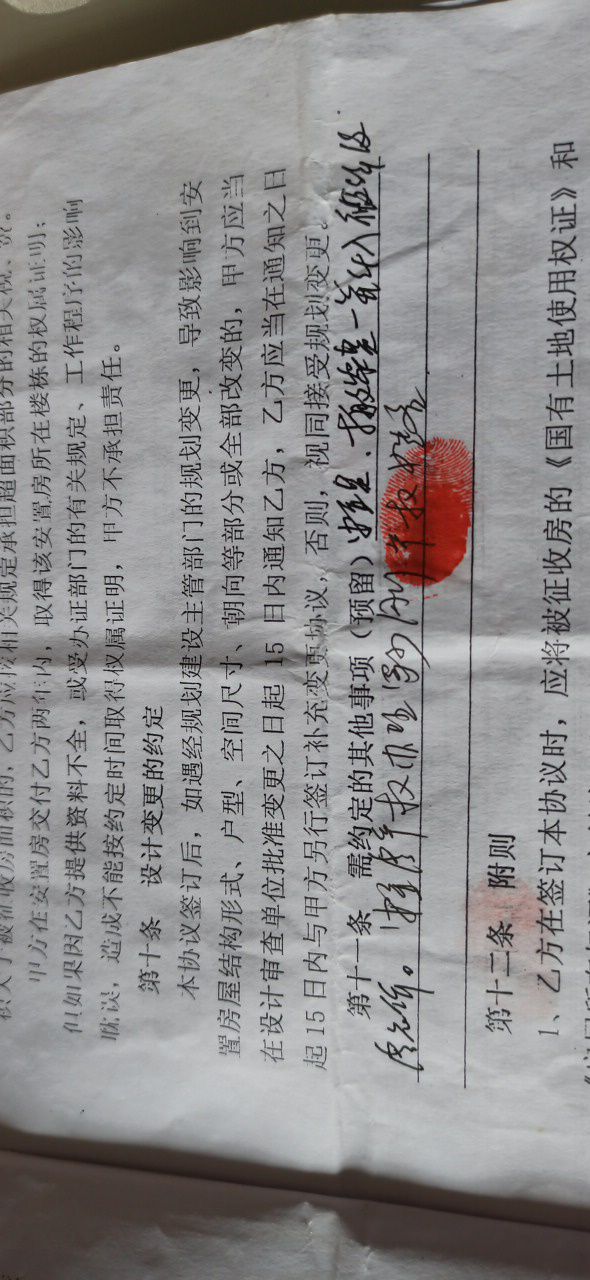 积大于被征收房面积的，乙方应按相关规定承担超面积部分的相关税、费。
甲方在安置房交付乙方两年内，取得该安置房所在楼栋的权属证明；
但如果因乙方提供资料不全，或受办证部门的有关规定、工作程序的影响
耽误，造成不能按约定时间取得权属证明，甲方不承担责任。
第十条 设计变更的约定
本协议签订后，如遇经规划建设主管部门的规划变更，导致影响到安
置房屋结构形式、户型、空间尺寸、朝向等部分或全部改变的，甲方应当
在设计审查单位批准变更之日起 15 日内通知乙方，乙方应当在通知之日
起 15 日内与甲方另行签订补充变更协议，否则，视同接受规划变更。
第十一条 需约定的其他事项（预留）
第十二条 附则
1、乙方在签订本协议时，应将被征收房的《国有土地使用权证》和